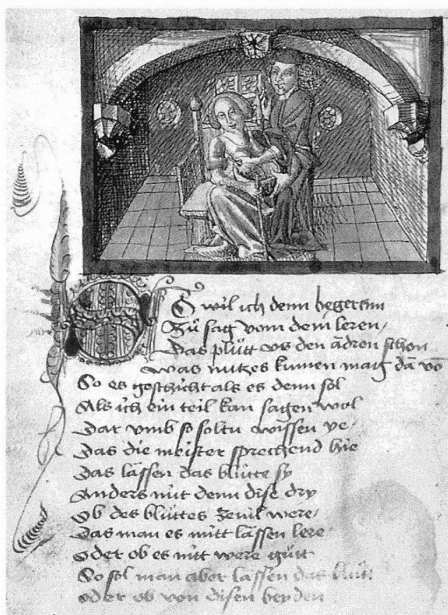 So wil ich denn begeren
Zů sag vom dem leren
Das plůtt vs den ådren schon
Was nutzes kumen mag dā vō
So es geschicht als es denn sol
Als ich ein teil kan sagen wol
Dar vmb so soltu wissen ye
Das die meister sprechend hie
Das lǎssen das blůtte sy
Anders nüt denn dise dry
Ob des blůttes zeuil were
Das man es mitt lǎssen lere
Oder ob es nitt were gůtt
So sol man aber lǎssen das
Oder ob von disen beyden